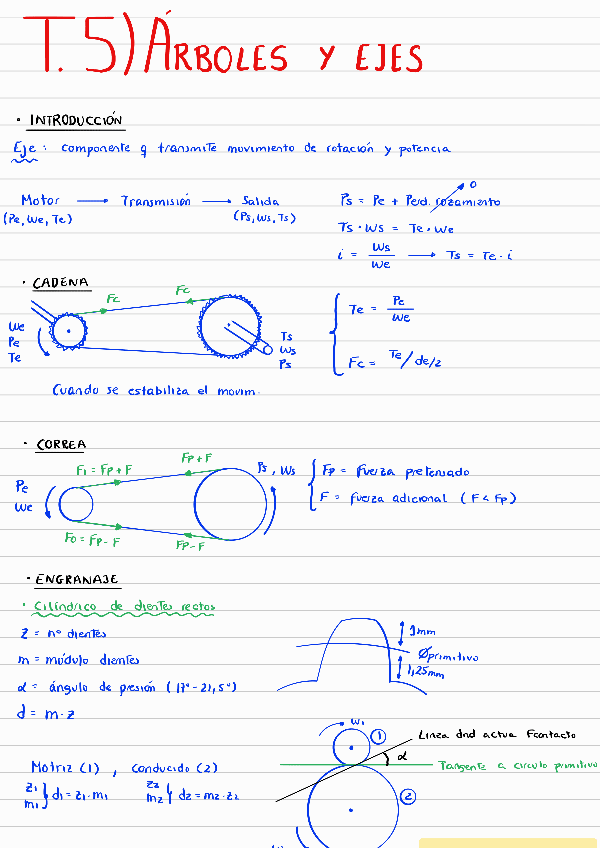 T.5) ÁRBOLES Y EJES
· INTRODUCCIÓN
Eje: componente q transmite movimiento de rotación y potencia
Motor → Transmisión → Salida
(Pe, We, Te) (Ps, Ws, Ts)
Ps = Pe + Perd. rozamiento 0
Ts · Ws = Te · We
i = Ws / We → Ts = Te · i
· CADENA
Fc Fc
We
Pe
Te
Ts
Ws
Ps
Te = Pe / We
Fc = Te / de/2
Cuando se estabiliza el movim.
· CORREA
F1 = Fp + F Fp + F
Pe
We
Ps, Ws
F0 = Fp - F Fp - F
Fp = fuerza pretensado
F = fuerza adicional (F < Fp)
· ENGRANAJE
· Cilíndrico de dientes rectos
Z = nº dientes
m = módulo dientes
α = ángulo de presión (17º - 21,5º)
d = m · z
1mm
Ø primitivo
1,25mm
Motriz (1), conducido (2)
z1 m1 } d1 = z1 · m1 z2 m2 } d2 = m2 · z2
W1
1
Linea dnd actua Fcontacto
α
Tangente a circulo primitivo
2